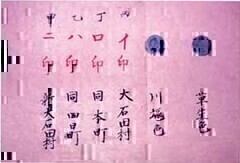 草生色
川端色
丙 イ印 大石田村
丁 ロ印 同本町
乙 八印 同四日町
甲 二印 新大石田村